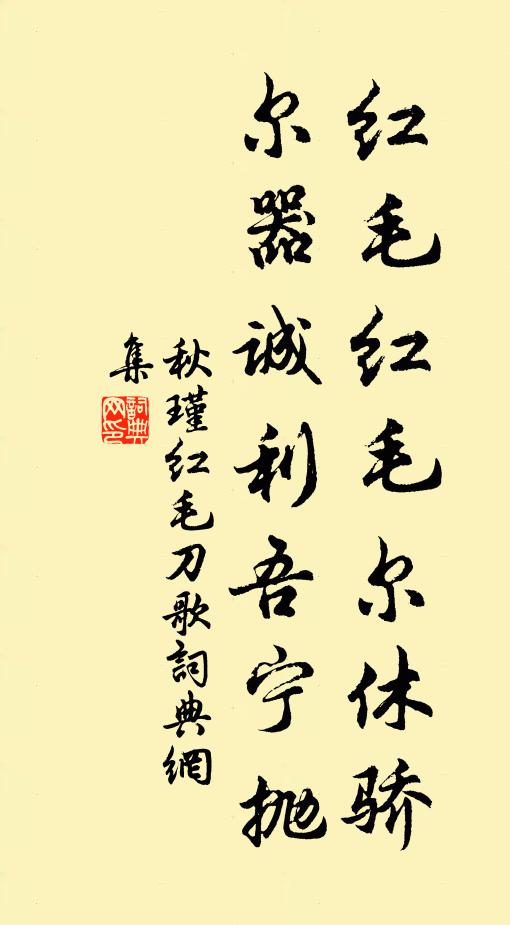 红毛红毛尔休骄
尔器诚利吾宁抛
秋瑾红毛刀歌詞典網
集
詞典
网印